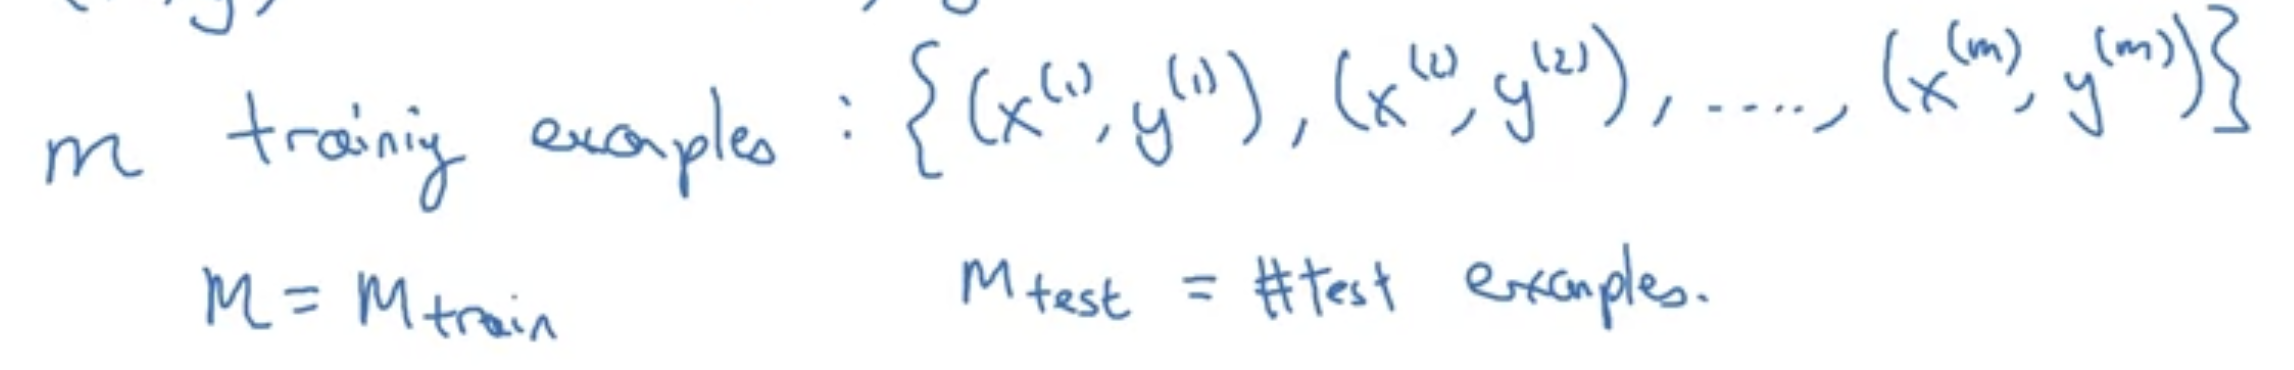 m training examples : {(x⁽¹⁾, y⁽¹⁾), (x⁽²⁾, y⁽²⁾), ....., (x⁽ᵐ⁾, y⁽ᵐ⁾)}
M = M train M test = #test examples.